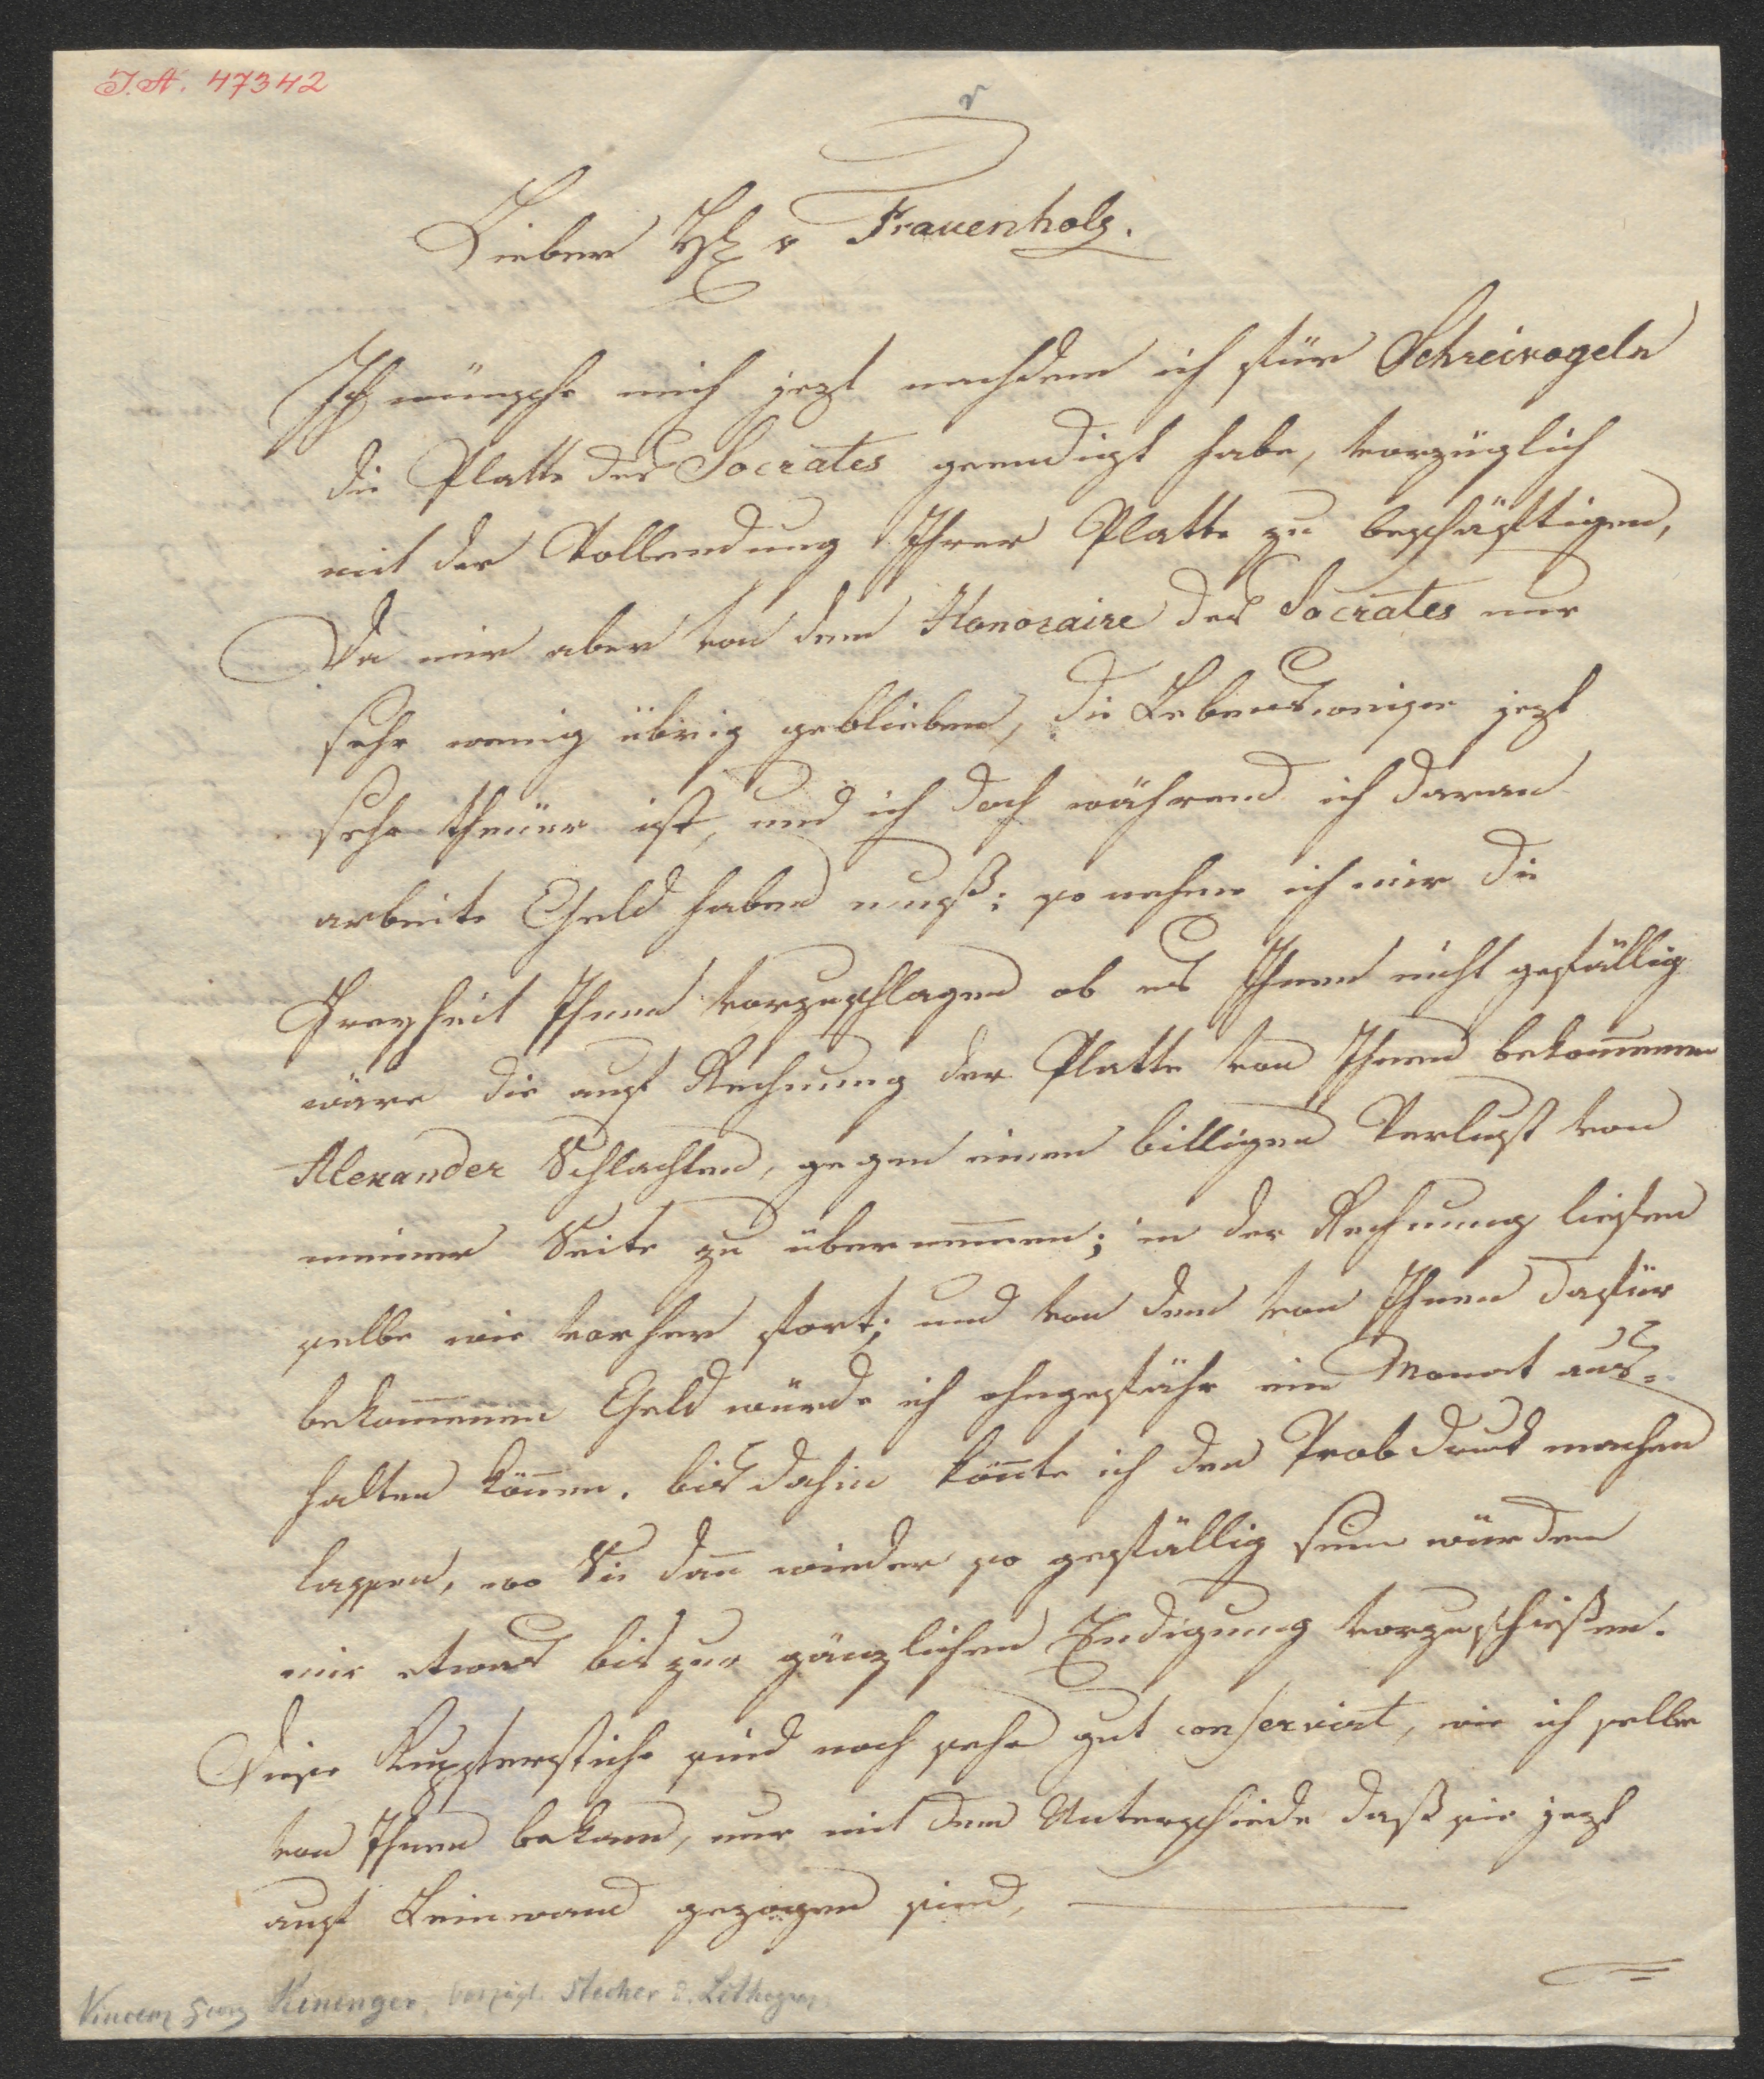 I.N. 47342
r
Lieber H v Frauenholz.
Ich wünsche mich jezt nachdem ich für Schreivogeln
die Platte des Socrates geendigt habe, vorzüglich
mit der Vollendung Ihrer Platte zu beschäftigen,
Da mir aber von dem Honoraire des Socrates nur
sehr wenig übrig geblieben, die Lebensweise jezt
sehr theuer ist, und ich doch während ich daran
arbeite Geld haben muß; so nehme ich mir die
Freyheit Ihnen vorzuschlagen ob es Ihnen nicht gefällig
wäre die auf Rechnung der Platte von Ihnen bekom̄enen
Alexander Schlachten, gegen einen billigen Verlust von
meiner Seite zu übernem̄en; in der Rechnung liefen
selbe wie vorher fort; und von dem von Ihnen dafür
bekom̄enen Geld würde ich ohngefähr ein Monat aus-
halten kön̄en. bis dahin kön̄te ich den Probdruck machen
lassen, wo Sie dan̄ wieder so gefällig sein würden
mir etwas bis zur gänzlichen Endigung vorzuschießen.
Diese Kupferstiche sind noch sehr gut conservirt, wie ich selbe
von Ihnen bekam, nur mit dem Unterschiede daß sie jezt
auf Leinwand gezogen sind,
Vincenz Georg Kininger, vorzügl. Stecher u. Lithogr.